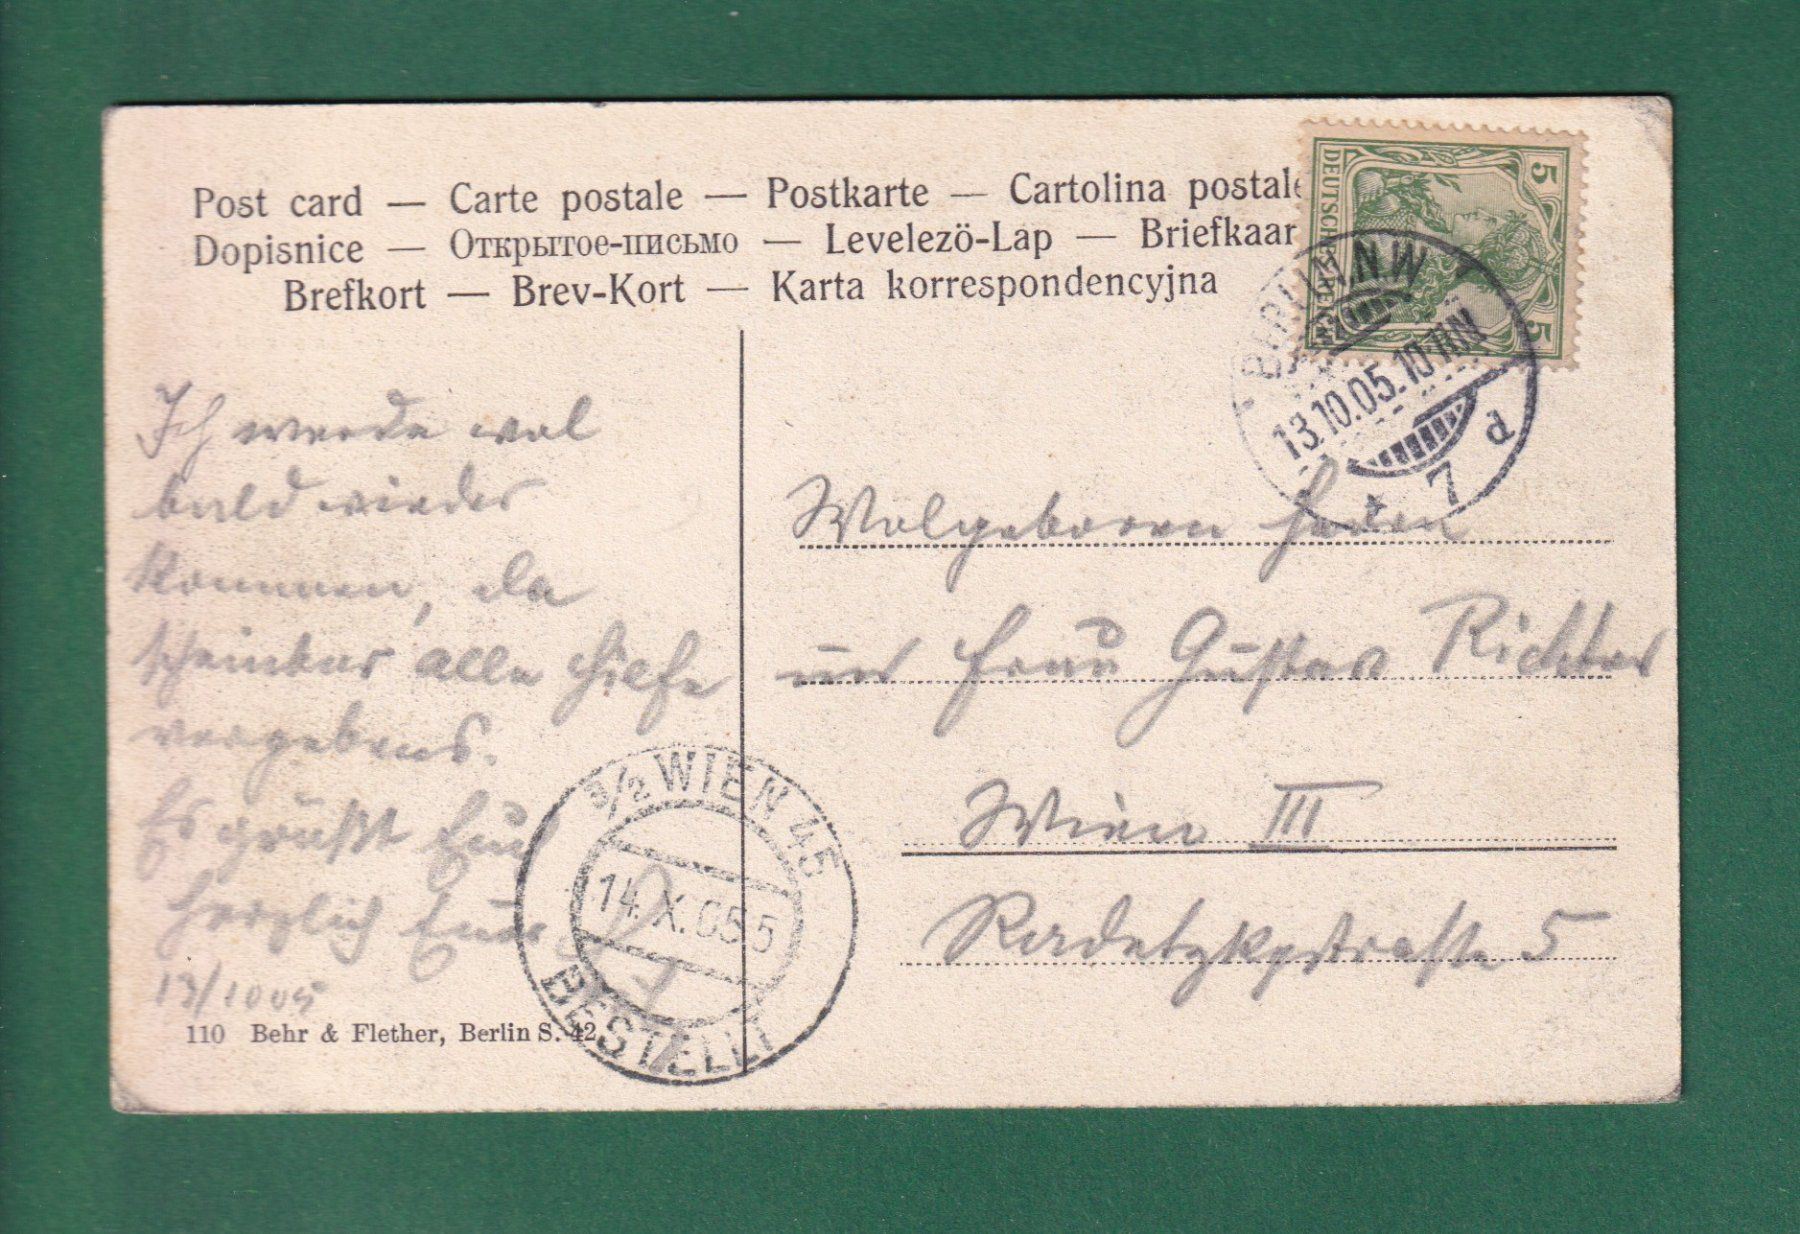 Post card — Carte postale — Postkarte — Cartolina postale
Dopisnice — Открытое-письмо — Levelezö-Lap — Briefkaar
Brefkort — Brev-Kort — Karta korrespondencyjna
DEUTSCHES REICH
5
5
BERLIN.N.W
13.10.05.10-11N
* 7 d
Ich werde wol
bald wieder
kommen, da
scheinbar alle Hilfe
vergebens.
Es grüßt Euch
herzlich Euer
13/10 05
Wolgeboren Herrn
und Frau Gustav Richter
Wien III
Radetzkystraße 5
3/2 WIEN 45
14.X.05 5
BESTELLT
110 Behr & Flether, Berlin S. 42